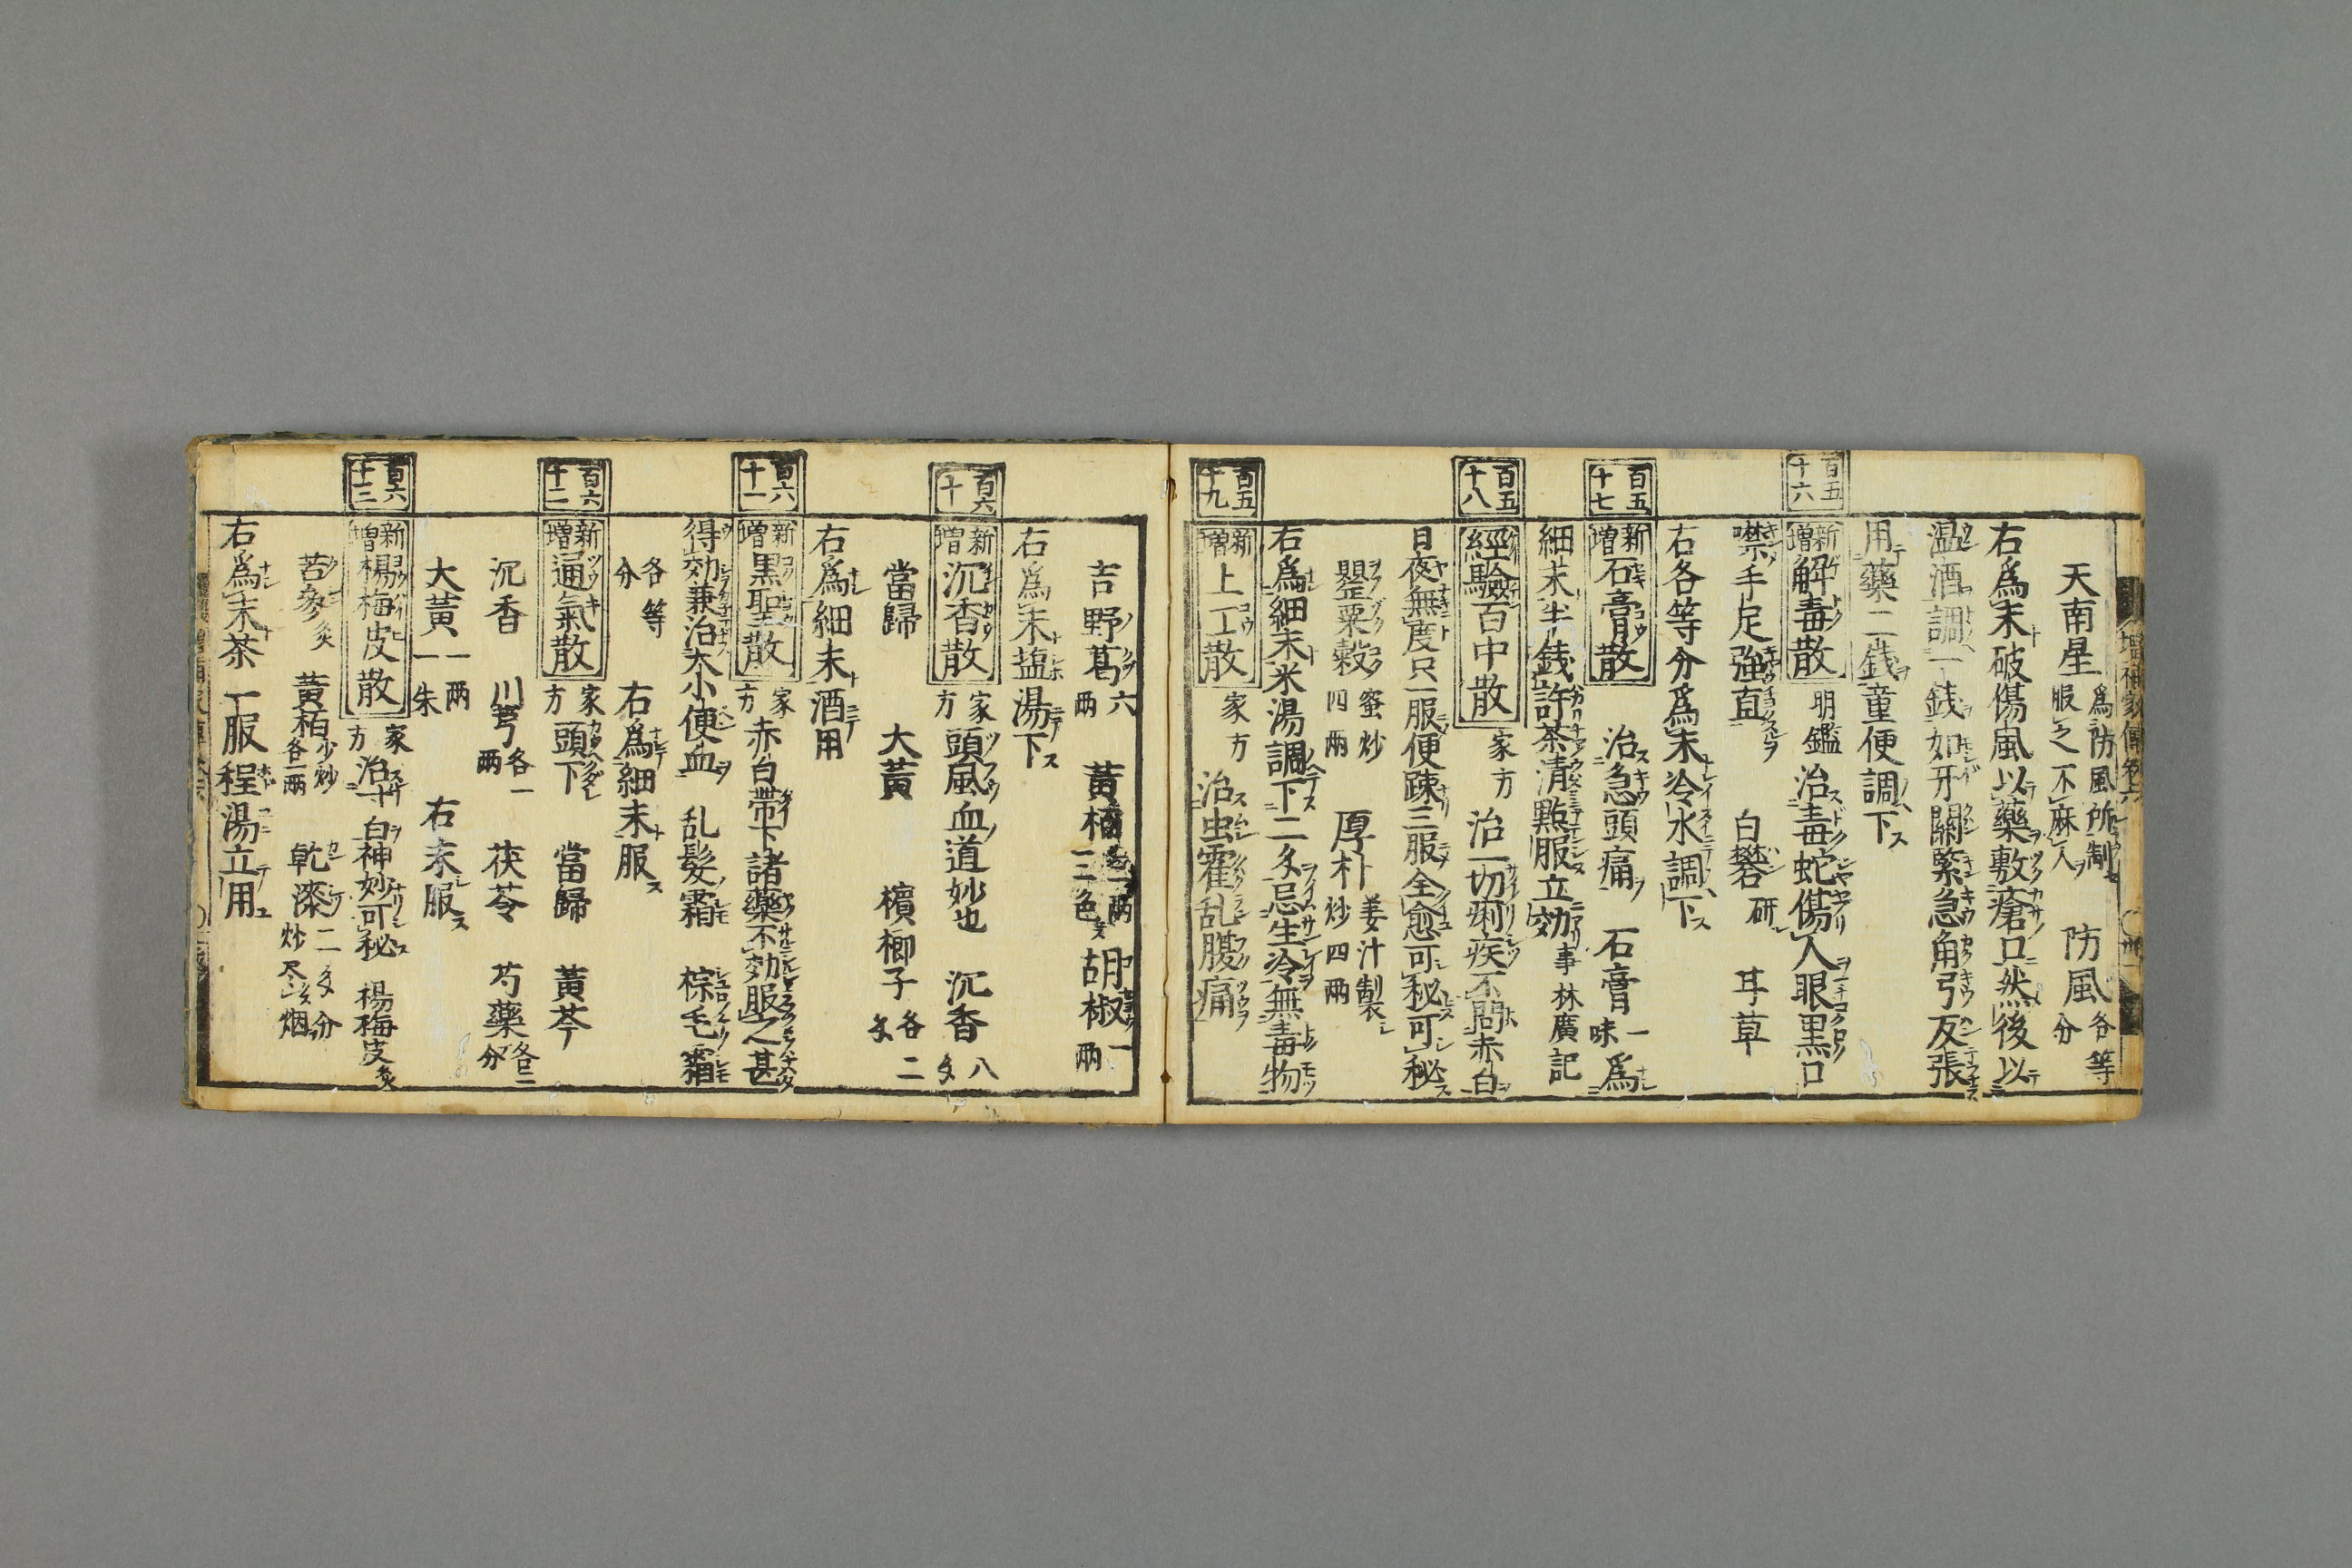 天南星 爲防風所制服之不麻人 防風 各等分
右爲末破傷風以藥敷瘡口然後以
温酒調一銭如牙關緊急角弓反張
用藥二銭童便調下
百五十六 新増 解毒散 明鑑 治毒蛇傷人眼黒口
噤手足強直 白礬 研 耳草
右各等分爲末冷水調下
百五十七 新増 石膏散 治急頭痛 石膏 一味 爲
細末半銭許茶清點服立効 事林廣記
百五十八 經驗百中散 家方 治一切痢疾不問赤白
日夜無度只一服便疎三服全愈可秘可秘
罌粟殻 蜜炒四兩 厚朴 姜汁製炒四兩
右爲細末米湯調下二匁忌生冷無毒物
百五十九 新増 上工散 家方 治虫霍乱腹痛
吉野葛 六兩 黄栢 二色 胡椒 一兩
右爲末塩湯下
百六十 新増 沉香散 家方 頭風血道妙也 沉香 八匁
當歸 大黄 檳榔子 各二匁
右爲細末酒用
百六十一 新増 黒聖散 家方 赤白帶下諸藥不効服之甚
得効兼治大小便血 乱髪霜 棕毛霜
各等分 右爲細末服
百六十二 新増 通氣散 家方 頭下 當歸 黄芩
沉香 川芎 各一兩 茯苓 芍藥 各二分
大黄 一兩一朱 右末服
百六十三 新増 楊梅皮散 家方 治寸白神妙可秘 楊梅皮 炙
苦參 炙 黄栢 少炒各一兩 乾漆 二匁二分炒尽烟
右爲末茶一服程湯立用